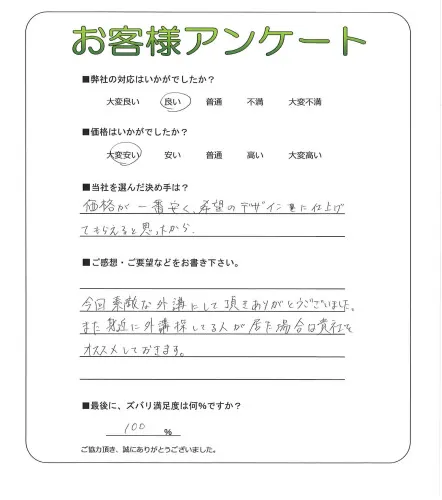 お客様アンケート
■弊社の対応はいかがでしたか？
大変良い 良い 普通 不満 大変不満
■価格はいかがでしたか？
大変安い 安い 普通 高い 大変高い
■当社を選んだ決め手は？
価格が一番安く、希望のデザイン通りに仕上げ
てもらえると思ったから。
■ご感想・ご要望などをお書き下さい。
今回素敵な外溝にして頂きありがとうございました。
また身近に外溝探してる人が居た場合は貴社を
オススメしておきます。
■最後に、ズバリ満足度は何％ですか？
100 %
ご協力頂き、誠にありがとうございました。